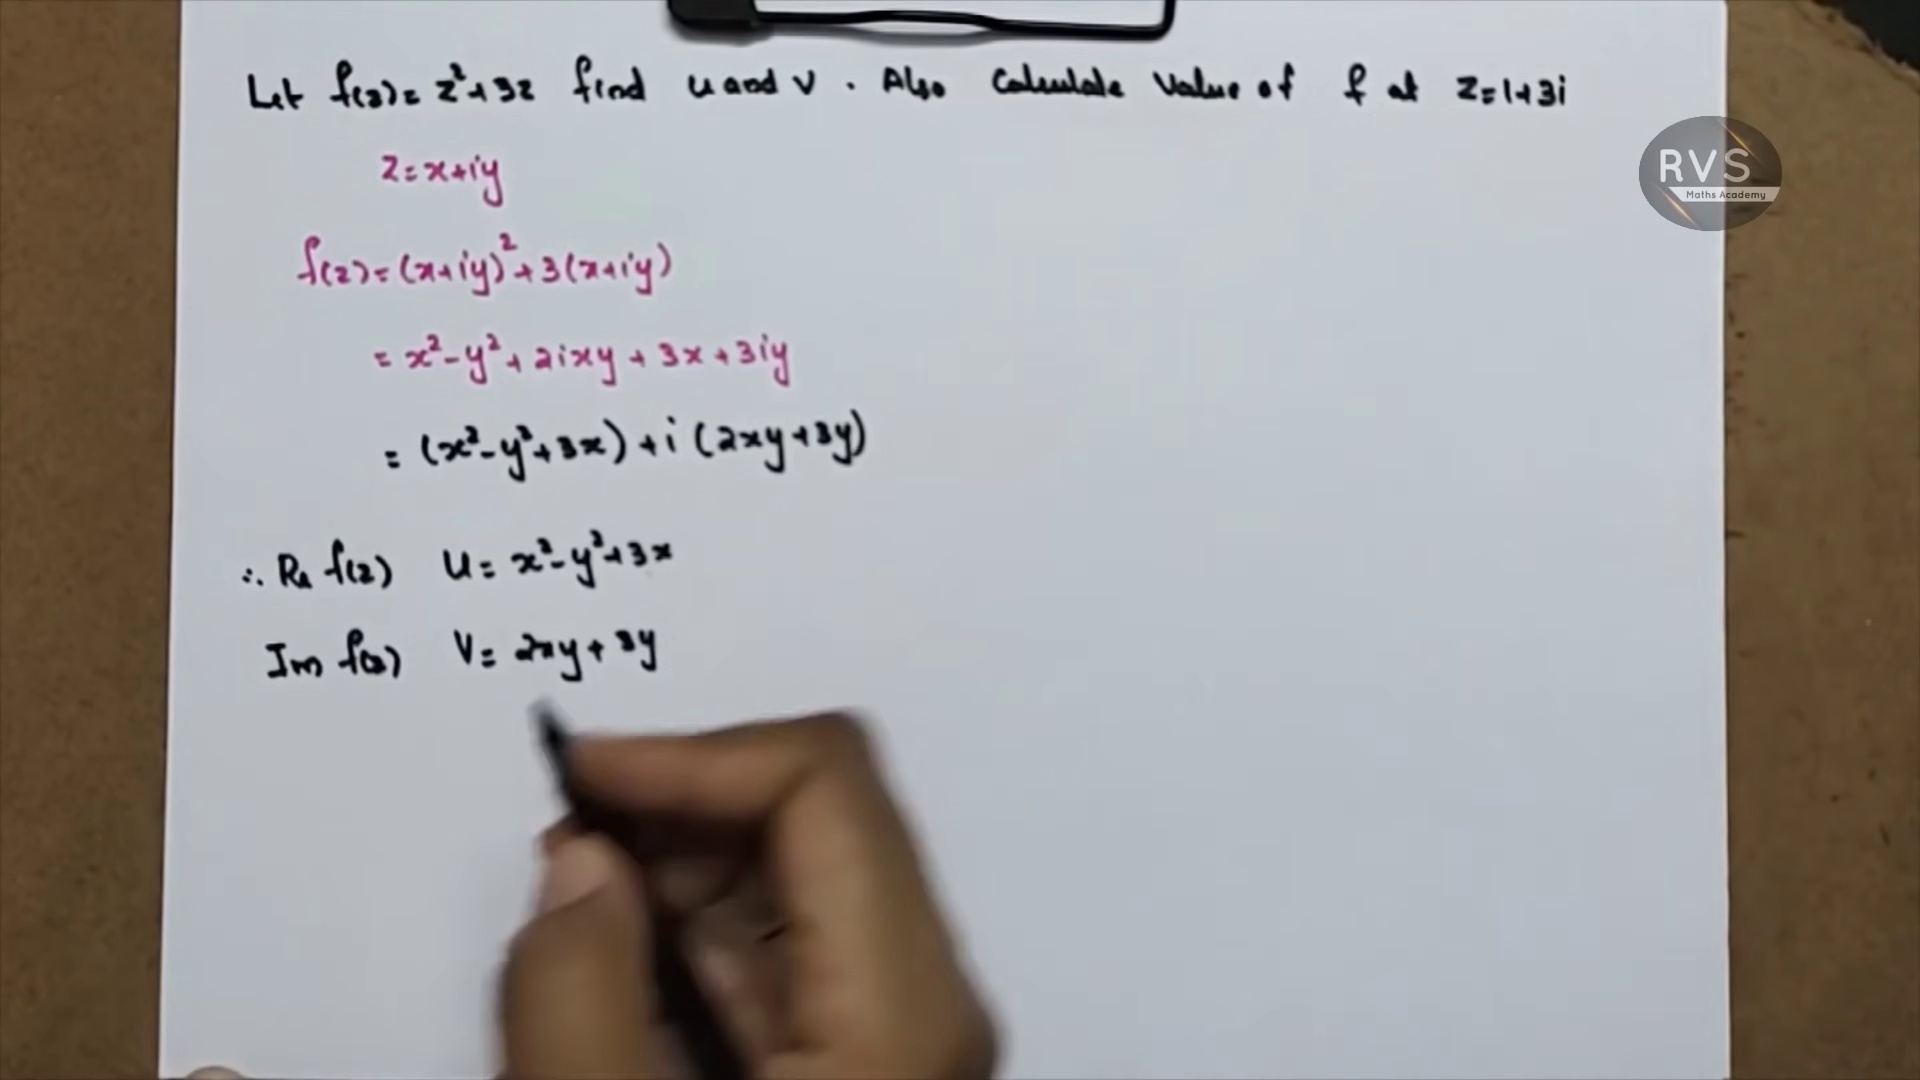 Let f(z) = z² + 3z find u and v. Also Calculate Value of f at z = 1+3i
RVS
Maths Academy
z = x+iy
f(z) = (x+iy)² + 3(x+iy)
= x² - y² + 2ixy + 3x + 3iy
= (x² - y² + 3x) + i (2xy + 3y)
∴ Re f(z) u = x² - y² + 3x
Im f(z) v = 2xy + 3y